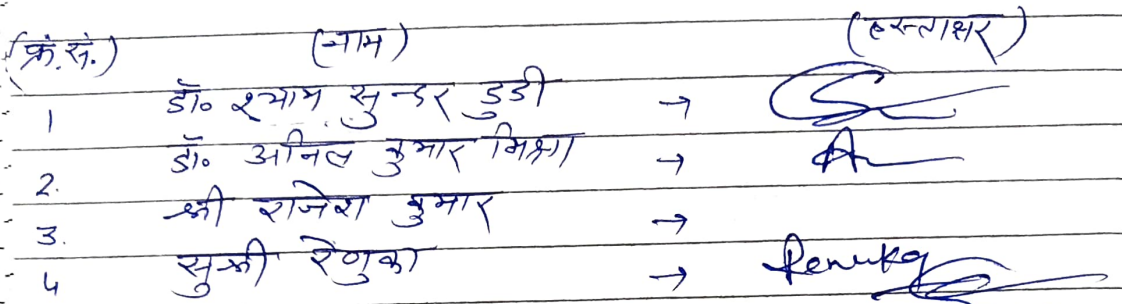 (क्रं.सं.) (नाम) (हस्ताक्षर)
1 डॉ० श्याम सुन्दर डुडी →
2. डॉ० अनिल कुमार मिश्रा →
3. श्री राजेश कुमार →
4 सुश्री रेणुका → Renuka